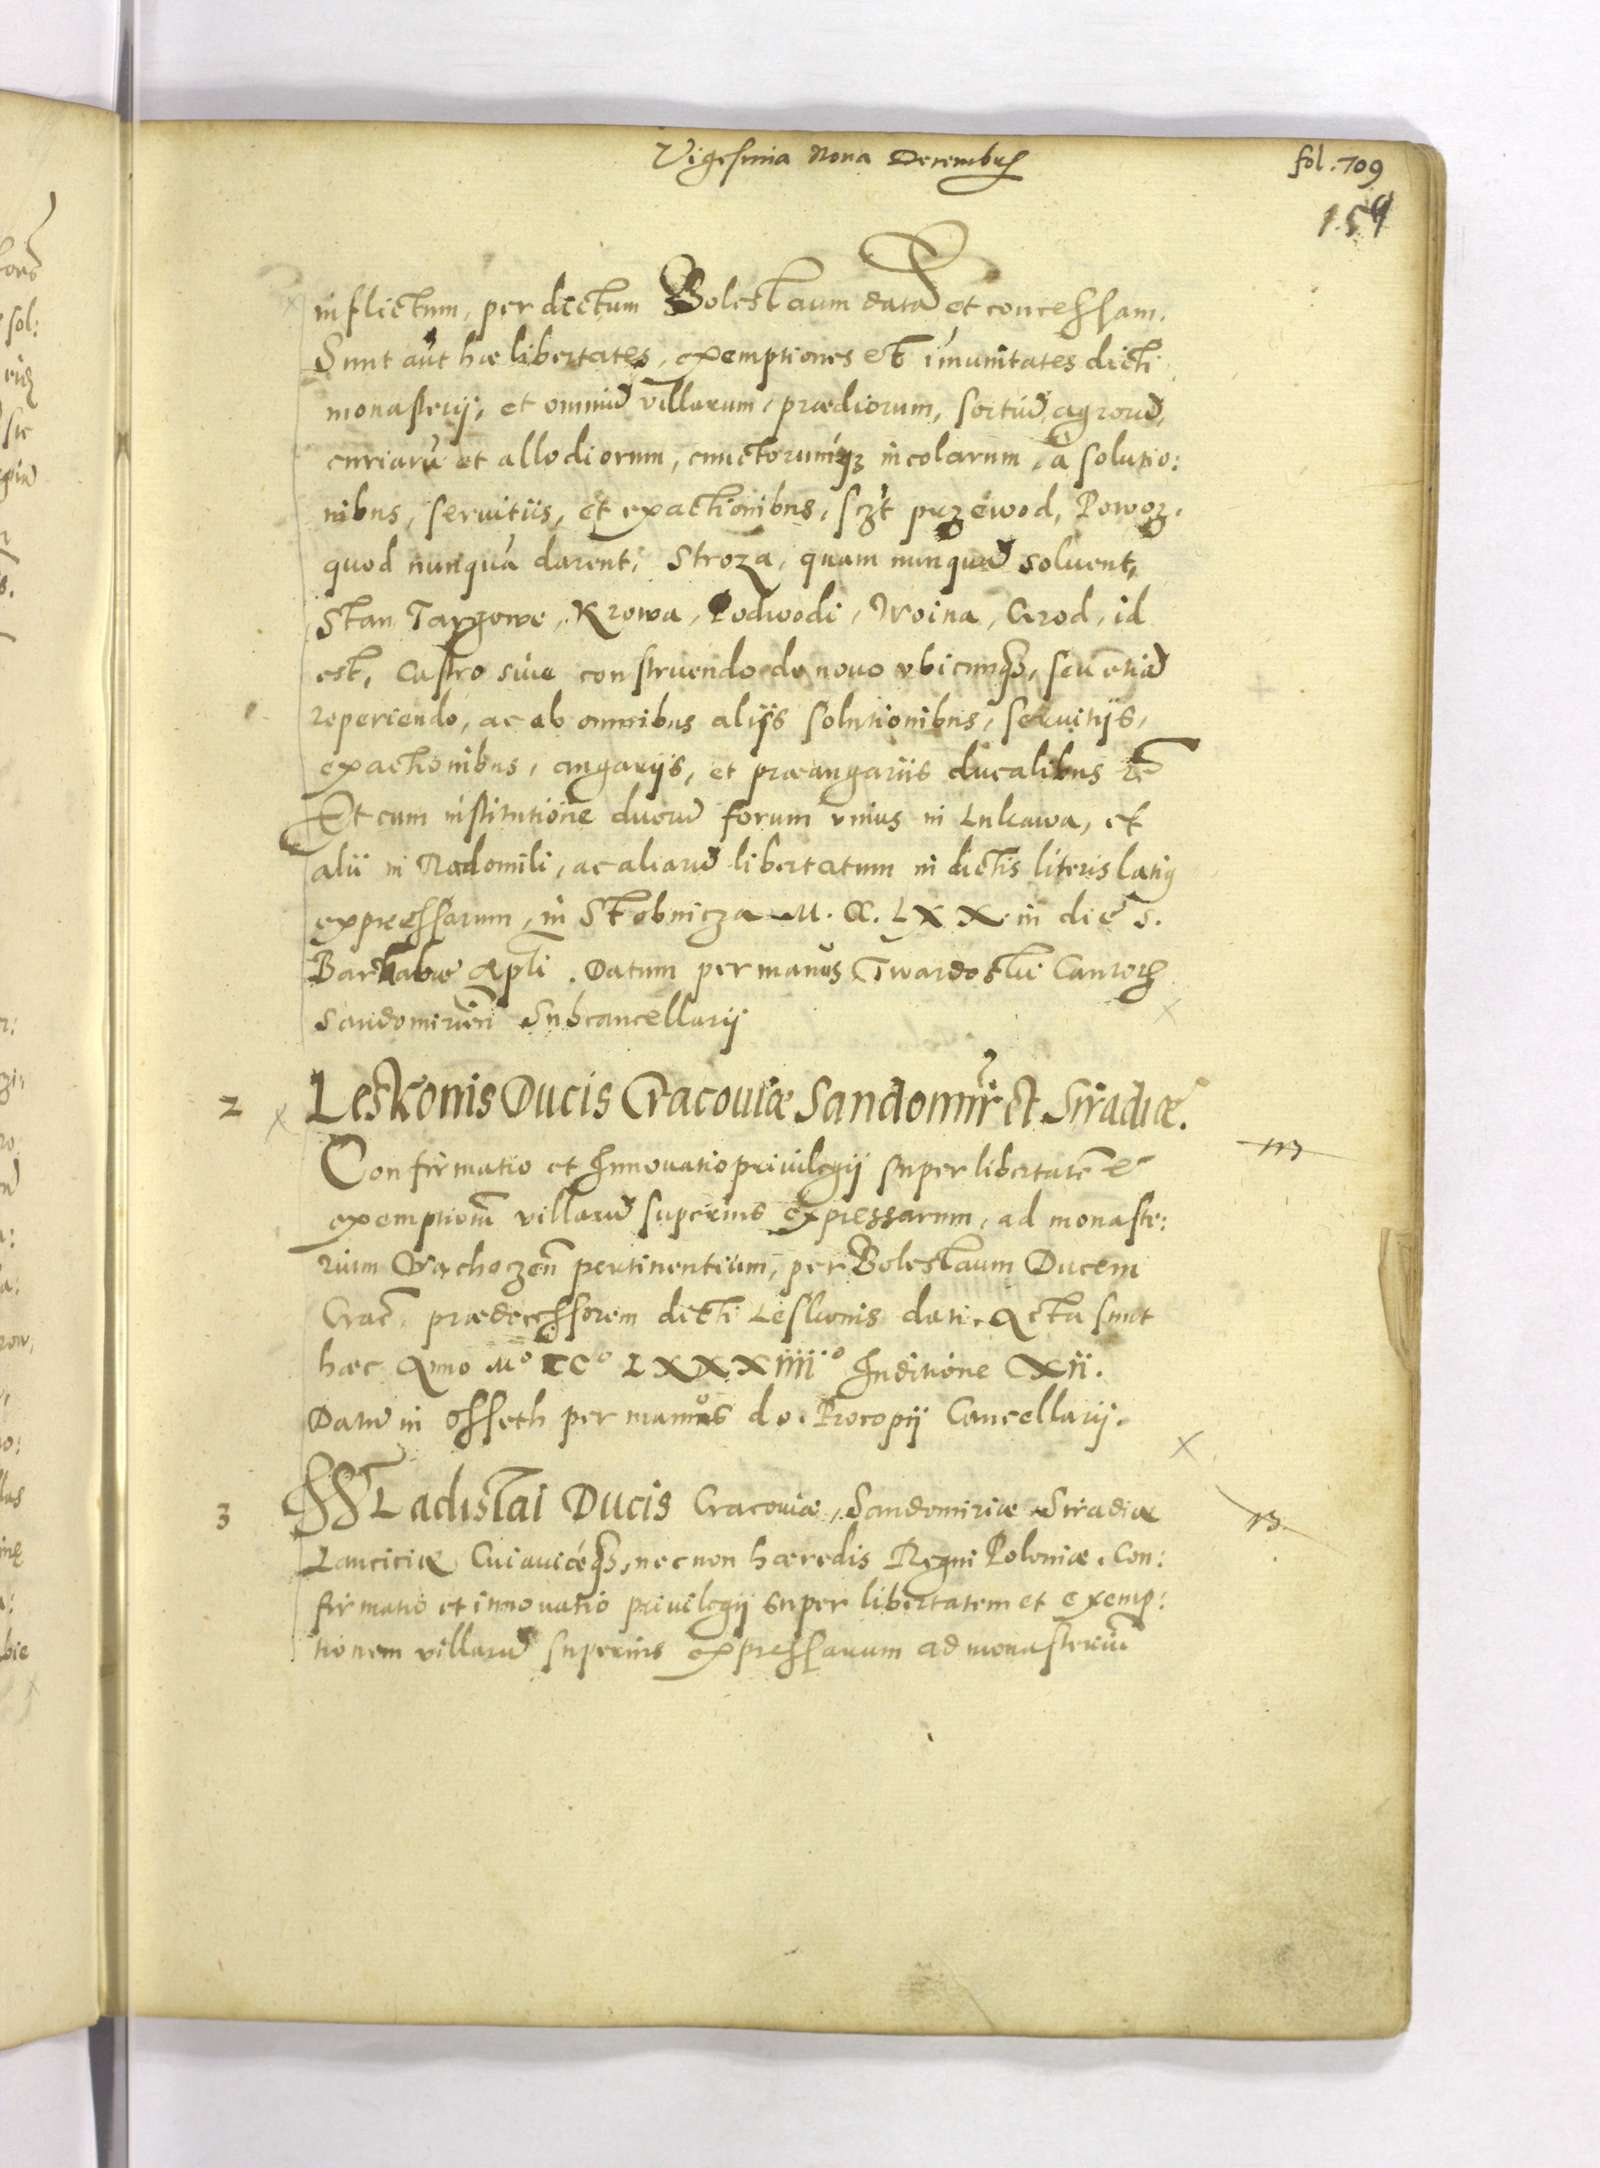 Vigesima Nona Decembris
fol. 709
159
inflictum, per dictum Boleslaum data et concessam.
Sunt aūt hæ libertates, exemptiones et imunitates dicti
monasterij, et omniū villarum, prædiorum, sortiū, agrorū,
curiarū et allodiorum, cunctorumq; incolarum, à solutio:
nibus, seruitiis, et exactionibus, sczt przewod, Powoz.
quod nunquā darent, Stroza, quam nunquā soluent,
Stan Targowe, Krowa, Podwodi, Woina, Grod, id
est, Castro siue construendo de nouo vbicunq;, seu etiā
reperiendo, ac ab omnibus aliis solutionibus, seruitijs,
exactionibus, angarijs, et præangariis ducalibus &c
Et cum institutione duorū forum vnius in Lukawa, et
alii in Radomili, ac aliarū libertatum in dictis literis latius
expressarum, in Stobnicza M. CC. LXX in die S.
Barnabæ Apli. Datum per manus Twardoslai Cantoris
Sandomirien Subcancellarij
2 Leskonis Ducis Cracouiæ Sandomir et Siradiæ.
Confirmatio et Innouatio priuilegij super libertatē et
exemptionē villarū superius expressarum, ad monaste:
rium Wachoczen pertinentium, per Boleslaum Ducem
Crac. prædecessorem dicti Leskonis dati. Acta sunt
hæc Anno Mo CCo LXXXiiii.o Inditione Xii.
Datū in Osseth per manus do. Procopij Cancellarij.
3 Wladislai Ducis Cracouiæ, Sandomiriæ Siradiæ
Lanciciæ Cuiauiéq;, nec non hæredis Regni Poloniæ. Con:
firmatio et innouatio priuilegij super libertatem et exemp:
tionem villarū superius expressarum ad monasteriū